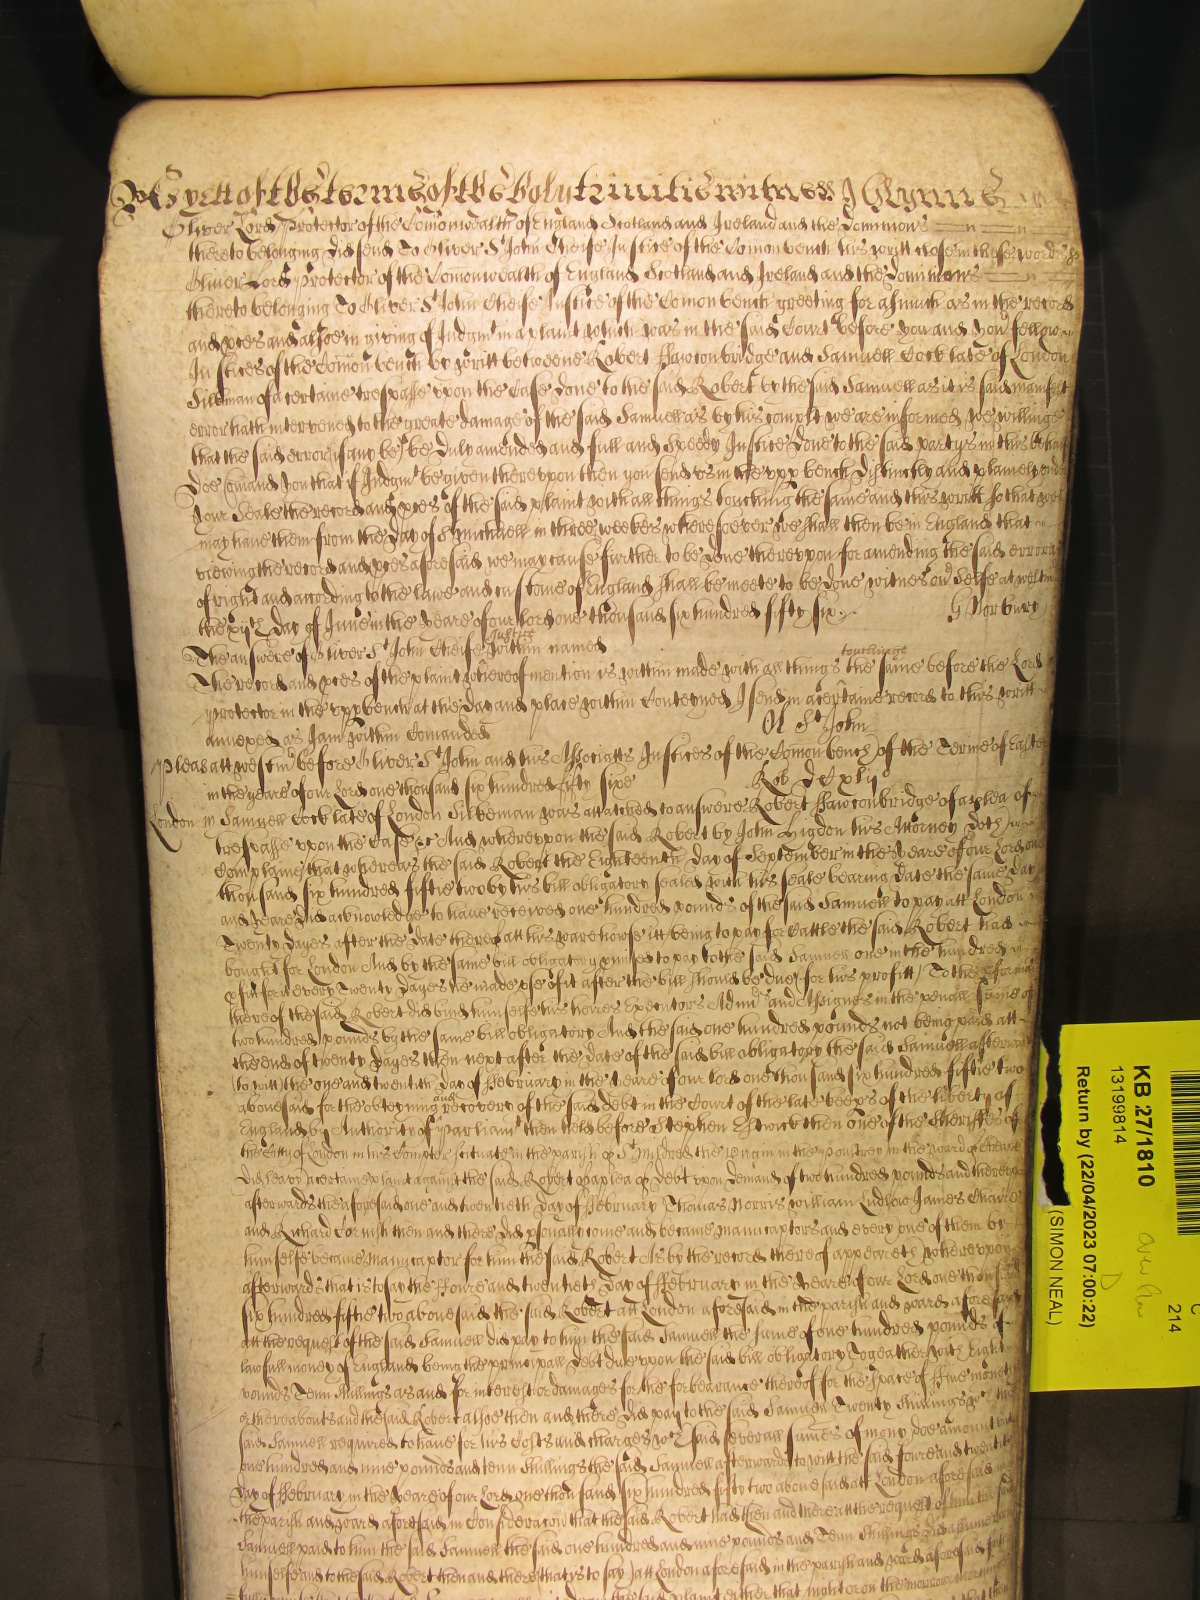 As yett of the terme of the holy trinitie witnes J Glynne
Oliver Lord Protector of the Comonwealth of England Scotland and Ireland and the Dominions
thereto belonging did send To Oliver St John Cheife Justice of the Comon bench his writt close in these words
Oliver Lord Protector of the Comonwealth of England Scotland and Ireland and the Dominions
thereto belonging To Oliver St John Cheife Justice of the Comon bench greeting for asmuch as in the record
and pces and alsoe in giving of Judgmt in a plaint which was in the said Court before you and your fellow
Justices of the Comon bench by writt betweene Robert Hawconbridge and Samuell Cock late of London
Silkman of a certaine trespasse upon the Case done to the said Robert by the said Samuell as it is said manifest
error hath intervened to the greate damage of the said Samuell as by his complt we are informed we willinge
that the said error if any be be duly amended and full and speedy Justice done to the said partyes in this behalf
doe comand you that if Judgmt be given thereupon then you send us in the upp bench distinctly and plainely under
your Seale the record and pces of the said plaint with all things touching the same and this writt so that we
may have them from the day of St Michaell in three weekes wheresoever we shall then be in England that
viewing the record and pces aforesaid we may cause further to be done thereupon for amending the said error as
of right and according to the lawe and custome of England shall be meete to be done witnes our selfe at westm
the xijth day of June in the yeare of our lord one thousand six hundred fifty six G Norbury
The answere of Oliver St John Cheife Justice within named
The record and pces of the plaint whereof mention is within made with all things touchinge the same before the Lord
Protector in the upp bench at the day and place within Conteyned I send in a certaine record to this writt
annexed as I am within Comanded Ol St John
Pleas att westm before Oliver St John and his Associatts Justices of the Comon bench of the Terme of Easter
in the yeare of our Lord one thousand six hundred fifty sixe Ro DCxlij
London Samuell Cock late of London Silkeman was attatched to answere Robert Hawconbridge of a plea of
trespasse upon the Case &c And whereupon the said Robert by John Higdon his Attorney doth
Complaine that whereas the said Robert the Eighteenth day of September in the yeare of our Lord one
thousand six hundred fiftie two by his bill obligatory sealed with his seale bearing date the same day
and yeare did acknowledge to have received one hundred pounds of the said Samuell to pay att London
Twenty dayes after the date thereof att his warehouse itt being to pay for Cattle the said Robert had
bought for London And by the same bill obligatory pmised to pay to the said Samuell one in the hundred
pfitt for every Twenty dayes he made use of it after the bill should be due for his profitt To the pformance
thereof the said Robert did bind himselfe his heires Executors Admrs and Assignes in the penall summe of
two hundred pounds by the same bill obligatory And the said one hundred pounds not being paid att
the end of twenty dayes then next after the date of the said bill obligatory the said Samuell afterwards
to witt the one and twentith day of February in the yeare of our lord one thousand six hundred fiftie two
abovesaid for the obteyning and recovery of the said debt in the Court of the late keeps of the liberty of
England by Authority of Parliamt then held before Stephen Estwick then one of the Sheriffes of
the Citty of London in his Compter scituate in the parish of St Mildred the Virgin in the Poultrey in the ward of Cheape
did leavy a certaine plaint against the said Robert of a plea of debt upon demand of two hundred pounds and thereupon
afterwards the aforesaid one and twentieth day of February Thomas Norris William Ludlow James
and Richard Cornish then and there did psonally come and became manucaptors and every one of them by
himselfe became Manucaptor for him the said Robert As by the record thereof appeareth whereupon
afterwards that is to say the Foure and twentieth day of February in the yeare of our Lord one thousand
six hundred fiftie two abovesaid the said Robert att London aforesaid in the parish and ward aforesaid
att the request of the said Samuell did pay to him the said Samuell the summe of one hundred pounds of
lawfull money of England being the principall debt due upon the said bill obligatory Togeather with Eight
pounds Tenn shillings as and for interest or damages for the forbearance thereof for the space of Five moneths
or thereabouts and the said Robert alsoe then and there did pay to the said Samuell Twenty shillings wch the
said Samuell required to have for his Costs and charges wch said severall summes of mony doe amount unto
one hundred and nine pounds and tenn shillings the said Samuell afterwards to witt the said foure and twentith
day of February in the yeare of our Lord one thousand six hundred fifty two abovesaid att London aforesaid in
the parish and ward aforesaid in Consideracon that the said Robert had then and there att the request of him the said
Samuell paid to him the said Samuell the said one hundred and nine pounds and Tenn shillings did assume upon
himselfe and to the said Robert then and there that is to say att London aforesaid in the parish and ward aforesaid
the said plaint either that night or on the morrow morning
KB 27/1810
13199814
Return by (22/04/2023 07:00:22)
(SIMON NEAL)
214